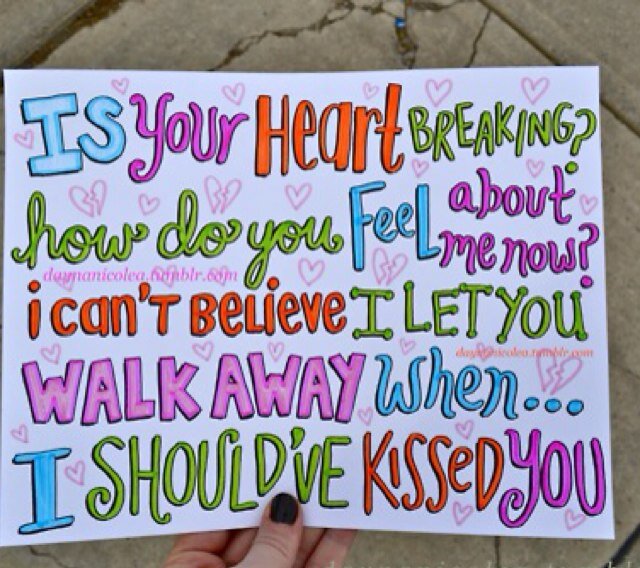 IS your Heart BREAKING?
how do you Feel about me now?
daynanicolea.tumblr.com
i can't Believe I LET YOU
daynanicolea.tumblr.com
WALK AWAY when...
I SHOULD'VE KISSED YOU